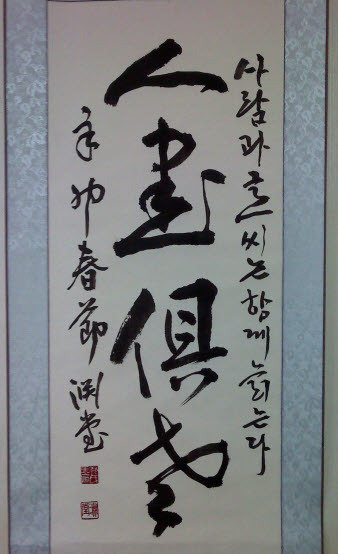 사람과 글씨는 함께 늙는다
人書俱老
辛卯春節